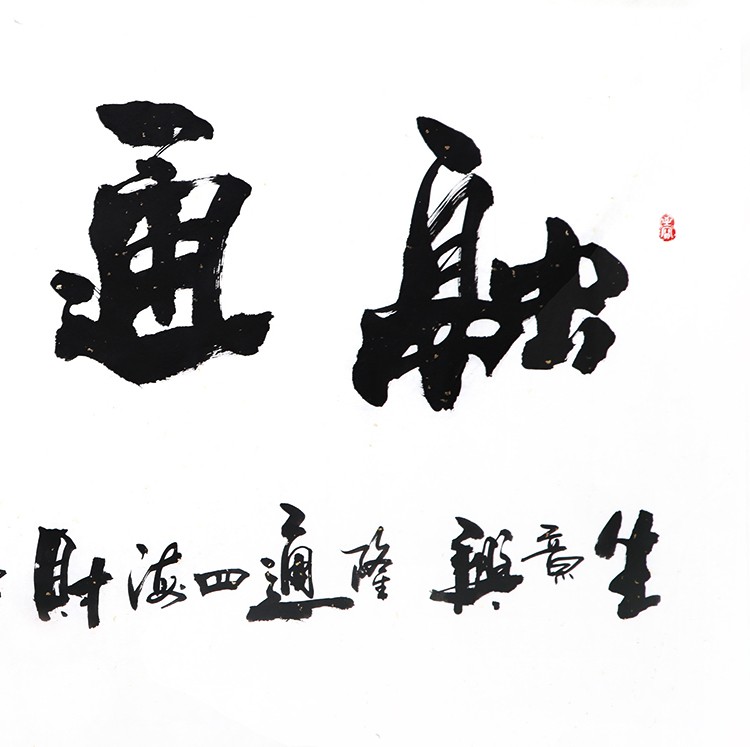 融通
生意興隆通四海財